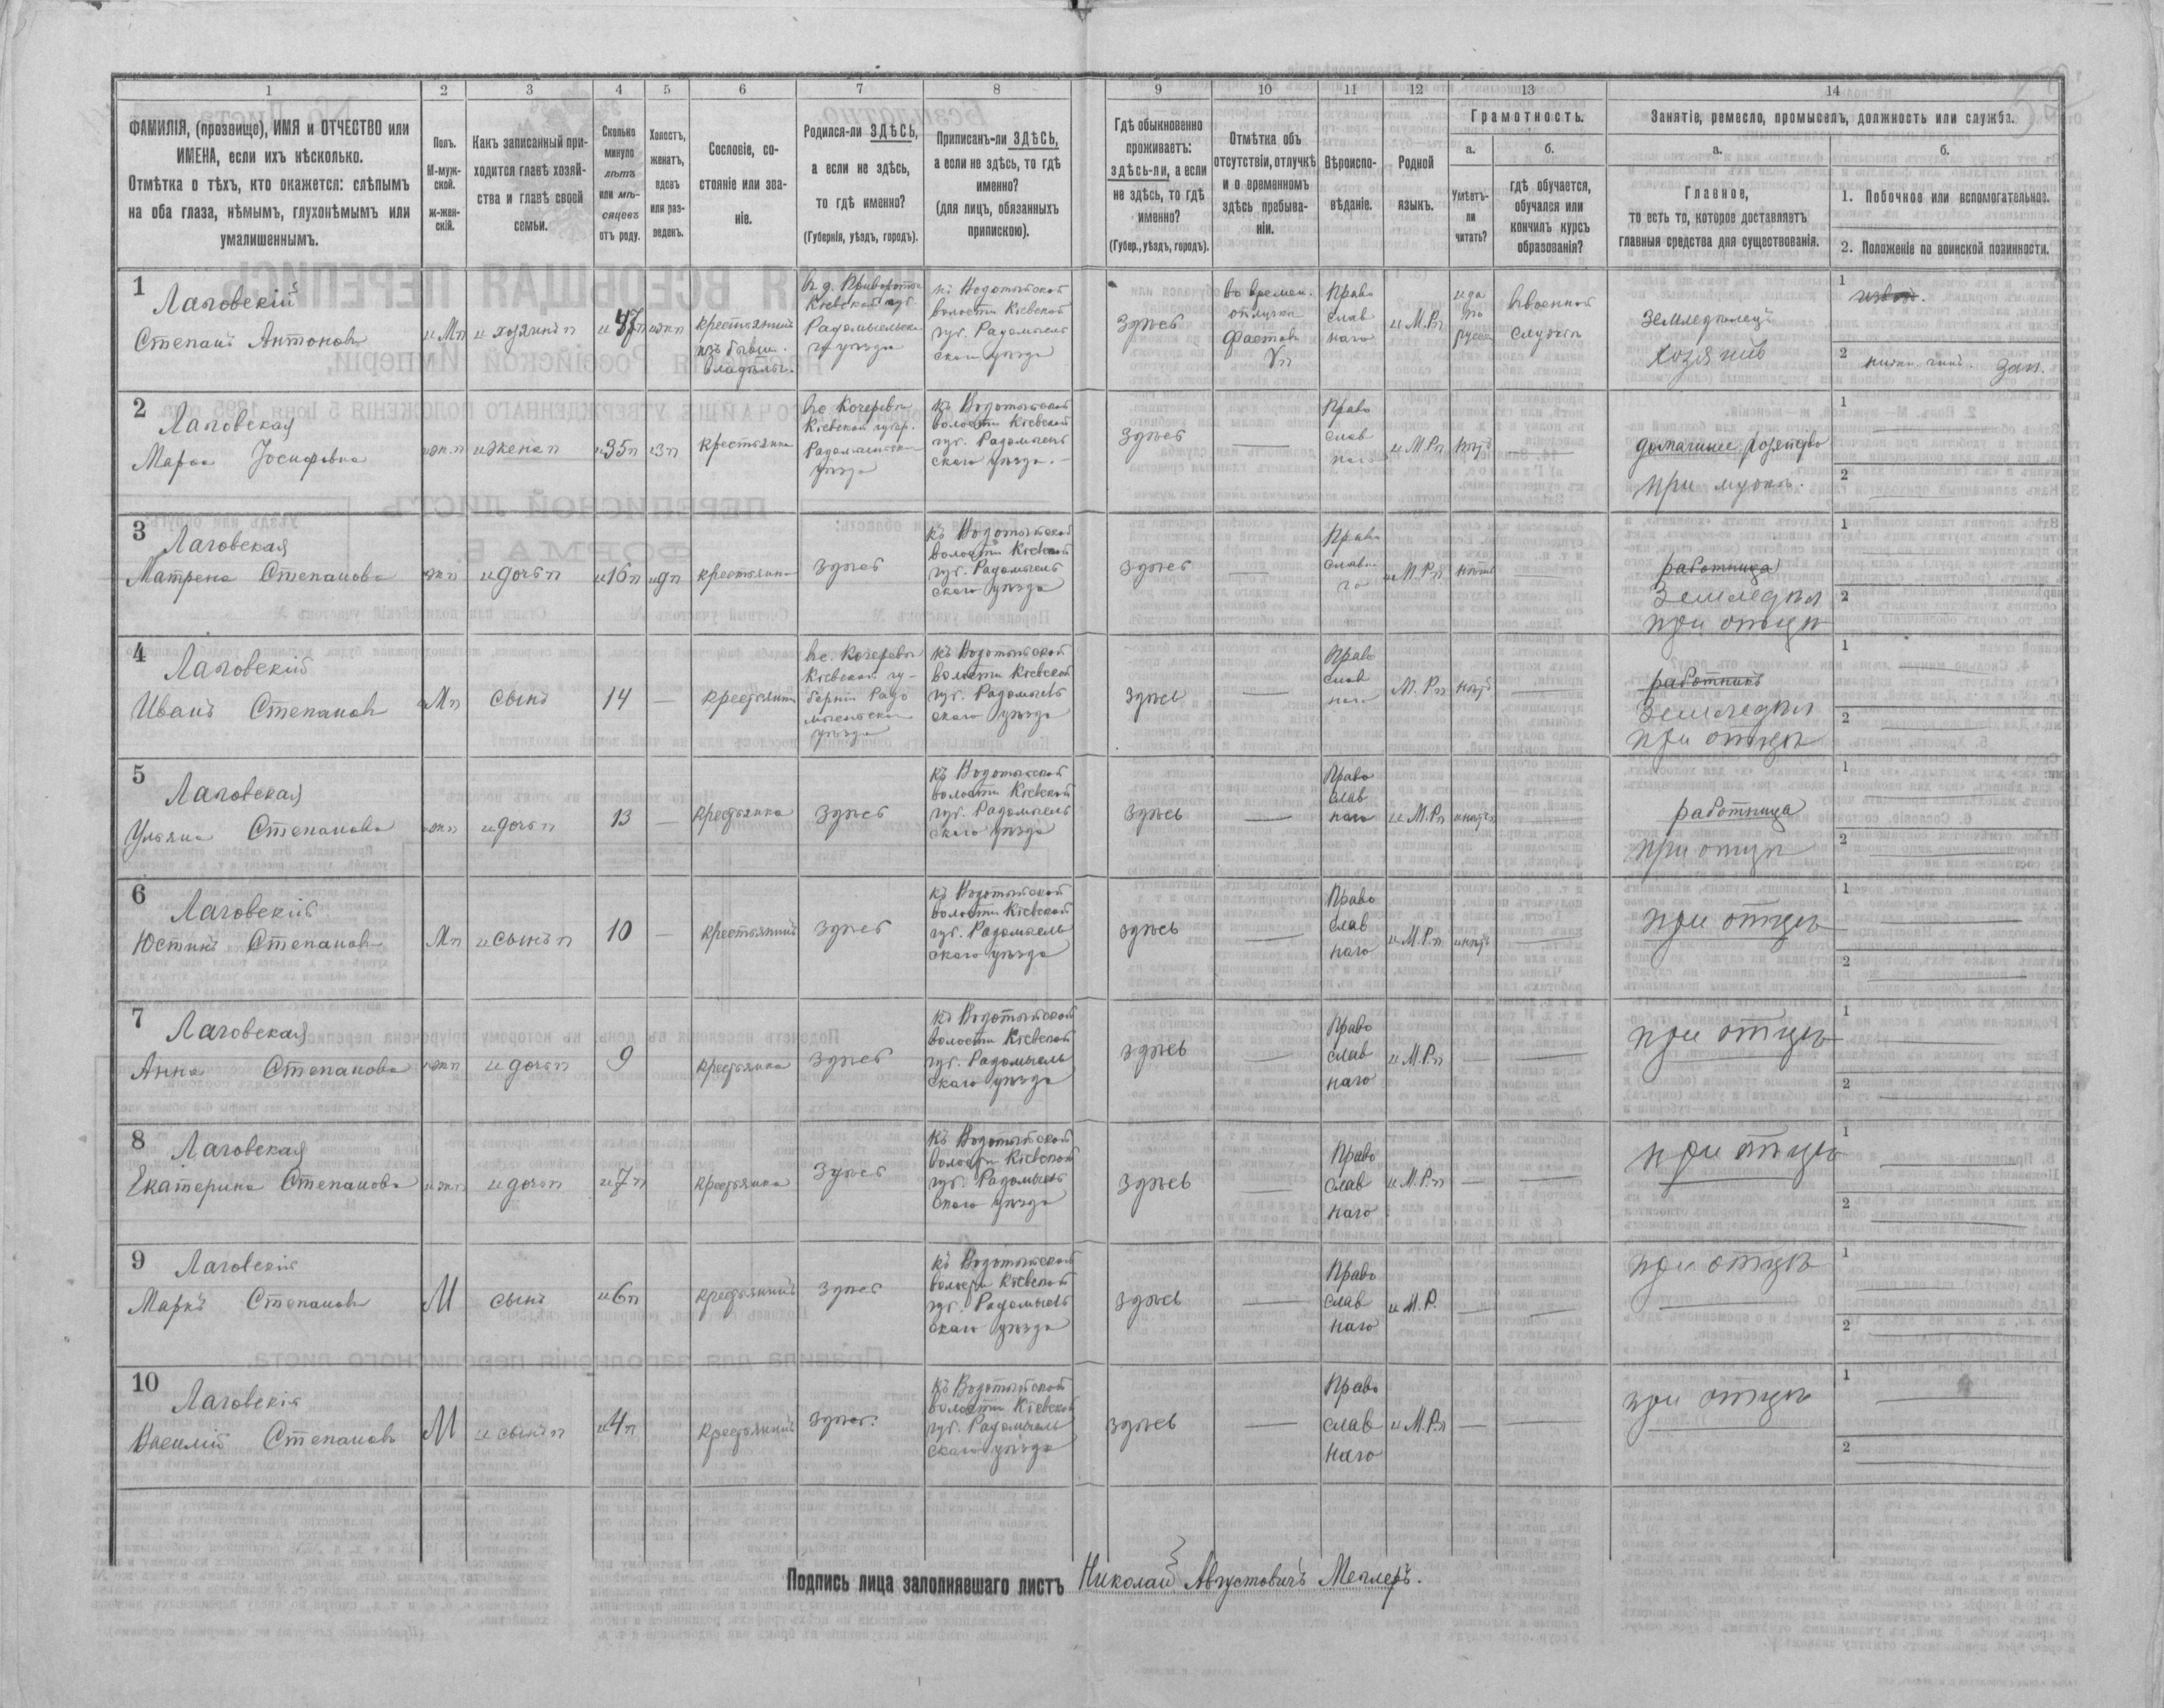 1 2 3 4 5 6 7 8 9 10 11 12 13 14
ФАМИЛІЯ, (прозвище), ИМЯ и ОТЧЕСТВО или
ИМЕНА, если ихъ нѣсколько.
Отмѣтка о тѣхъ, кто окажется: слѣпымъ
на оба глаза, нѣмымъ, глухонѣмымъ или
умалишеннымъ.
Полъ.
М-муж-
ской.
ж-жен-
скій.
Какъ записанный при-
ходится главѣ хозяй-
ства и главѣ своей
семьи.
Сколько
минуло
лѣтъ
или мѣ-
сяцевъ
отъ роду.
Холостъ,
женатъ,
вдовъ
или раз-
веденъ.
Сословіе, со-
стояніе или зва-
ніе.
Родился-ли ЗДѢСЬ,
а если не здѣсь,
то гдѣ именно?
(Губернія, уѣздъ, городъ).
Приписанъ-ли ЗДѢСЬ,
а если не здѣсь, то гдѣ
именно?
(для лицъ, обязанныхъ
припискою).
Гдѣ обыкновенно
проживаетъ:
здѣсь-ли, а если
не здѣсь, то гдѣ
именно?
(Губер., уѣздъ, городъ).
Отмѣтка объ
отсутствіи, отлучкѣ
и о временномъ
здѣсь пребыва-
ніи.
Вѣроиспо-
вѣданіе.
Родной
языкъ.
Грамотность.
а.
Умѣетъ-
ли
читать?
б.
гдѣ обучается,
обучался или
кончилъ курсъ
образованія?
Занятіе, ремесло, промыселъ, должность или служба.
а.
Главное,
то есть то, которое доставляетъ
главныя средства для существованія.
б.
1. Побочное или вспомогательное.
2. Положеніе по воинской повинности.
1
Лаговскій
Степанъ Антоновъ
М
хозяинъ
крестьянинъ
изъ бывш.
Кіевской губ.
уѣзда
къ Водотыйской
волости Кіевской
губ. Радомысль
скаго уѣзда
здѣсь
Право
слав
наго
М.Р.
да
земледѣлецъ
хозяинъ
1
2 зап.
2
Лаговская
Іосифовна
жена
35
крестьянка
въ с. Кочеровѣ
Кіевской губер.
уѣзда
къ Водотыйской
волости Кіевской
губ. Радомысль
скаго уѣзда
здѣсь
Право
слав
наго
М.Р.
нѣтъ
домашнее хозяйство
при мужѣ.
1
2
3
Лаговская
Матрена Степановна
дочь
16
крестьянка
здѣсь
къ Водотыйской
волости Кіевской
губ. Радомысль
скаго уѣзда
здѣсь
Право
славна
го
М.Р.
нѣтъ
работница
Земледѣл
при отцѣ
1
2
4
Лаговскій
Иванъ Степановъ
М
сынъ
14
крестьянинъ
въ с. Кочеровѣ
Кіевской гу-
берніи Радо
мысльскаго
уѣзда
къ Водотыйской
волости Кіевской
губ. Радомысль
скаго уѣзда
здѣсь
Право
слав
наго
М.Р.
нѣтъ
работникъ
Земледѣл
при отцѣ
1
2
5
Лаговская
Ульяна Степановна
дочь
13
крестьянка
здѣсь
къ Водотыйской
волости Кіевской
губ. Радомысль
скаго уѣзда
здѣсь
Право
слав
наго
М.Р.
нѣтъ
работница
при отцѣ
1
2
6
Лаговскій
Юстинъ Степановъ
М
сынъ
10
крестьянинъ
здѣсь
къ Водотыйской
волости Кіевской
губ. Радомысль
скаго уѣзда
здѣсь
Право
слав
наго
М.Р.
нѣтъ
при отцѣ
1
2
7
Лаговская
Анна Степановна
дочь
9
крестьянка
здѣсь
къ Водотыйской
волости Кіевской
губ. Радомысль
скаго уѣзда
здѣсь
Право
слав
наго
М.Р.
при отцѣ
1
2
8
Лаговская
Екатерина Степановна
дочь
7
крестьянка
здѣсь
къ Водотыйской
волости Кіевской
губ. Радомысль
скаго уѣзда
здѣсь
Право
слав
наго
М.Р.
при отцѣ
1
2
9
Лаговскій
Маркъ Степановъ
М
сынъ
6
крестьянинъ
здѣсь
къ Водотыйской
волости Кіевской
губ. Радомысль
скаго уѣзда
здѣсь
Право
слав
наго
М.Р.
при отцѣ
1
2
10
Лаговскій
Василій Степановъ
М
сынъ
4
крестьянинъ
здѣсь
къ Водотыйской
волости Кіевской
губ. Радомысль
скаго уѣзда
здѣсь
Право
слав
наго
М.Р.
при отцѣ
1
2
Подпись лица заполнявшаго листъ Николай Августовичъ Меглеръ.